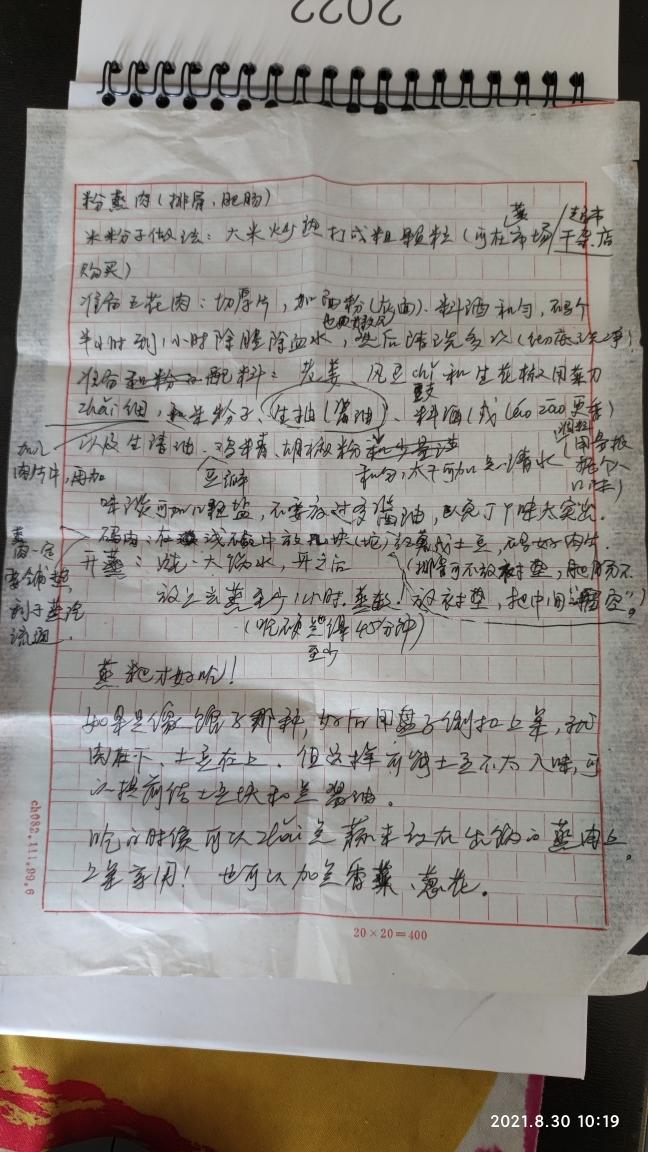 2022
粉蒸肉(排骨,肥肠)
米粉子做法:大米炒熟打成粗颗粒(可在菜市场/超市干杂店
购买)
准备五花肉:切厚片,加面粉(灰面)、料酒和匀,码个
半小时到1小时除腥除血水,然后清洗多次
准备和粉的配料:老姜、郫县豆chǐ和生花椒用菜刀
zhǎi细,和米粉子、生抽(酱油)、料酒(或 更香)
以及生清油、鸡精、胡椒粉和匀,太干可加点清水
豆瓣
(用多根据个人口味)
加入肉片中,再加
味淡可加口味盐,不要放过多酱油,以免味太突出.
码肉:在浅碗中放几块(坨)红薯或土豆,码好肉片.
开蒸:烧一大锅水,开之后
(排骨可不放衬垫,肥肠不放衬垫,把中间留空。)
放上去蒸至少1小时.
(吃硬点得至少45分钟)
蒸肉一定要铺垫,利于蒸汽流通.
蒸粑才好吃!
如果是像馆子那种,好后用盘子倒扣上桌,就
肉在下、土豆在上.但这样有时土豆不太入味,可
以提前给土豆块和点酱油.
吃的时候可以zhǎi点蒜末放在出锅的蒸肉上.
上桌享用!也可以加点香菜、葱花.
ch082.111.99.6
20×20=400
2021.8.30 10:19